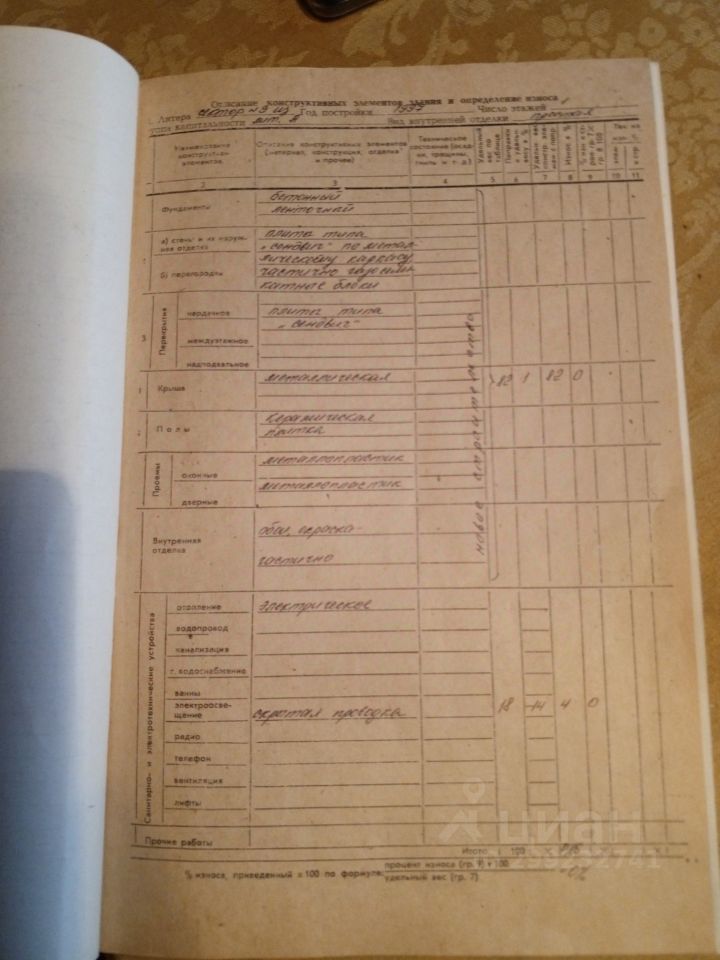 Описание конструктивных элементов здания и определение износа
Литера сектор №3 из Год постройки 1997 Число этажей 1
Группа капитальности лит. А Вид внутренней отделки простая
Наименование конструктивн. элементов
Описание конструктивных элементов (материал, конструкция, отделка и прочее)
Техническое состояние (осадки, трещины, гниль и т. д.)
Удельный вес по таблице
Износ в %
2 3 4 5 6 7 8 9 10 11
Фундаменты
бетонный
ленточный
а) стены и их наружная отделка
плита типа
„сендвич" по метал-
лическому каркасу
б) перегородки
частично газосили-
катные блоки
3
Перекрытия
чердачное
плита типа
„сендвич"
междуэтажное
надподвальное
Крыша
металлическая
82 1 82 0
Полы
керамическая
плитка
Проемы
металлопластик
оконные
металлопластик
дверные
Внутренняя отделка
обои, окраска-
частично
новое строительство
Санитарно- и электротехнические устройства
отопление
электрическое
водопровод
канализация
г. водоснабжение
ванны
электроосвещение
скрытая проводка
18 -14 4 0
радио
телефон
вентиляция
лифты
Прочие работы
Итого: 100
% износа, приведенный к 100 по формуле: процент износа (гр. 9) х 100
удельный вес (гр. 7)
циан